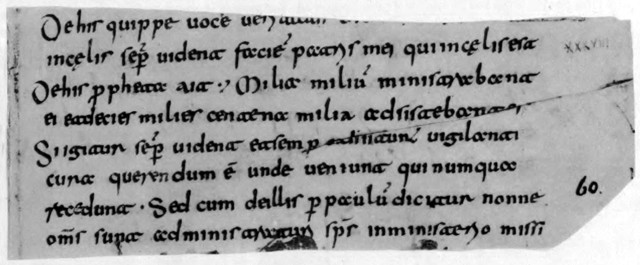 Dehis quippe uoce
incęlis sep̄ uident facie patris mei qui incęlis est
Dehis ꝓpheta ait · Milia miliū ministrabant
ei et decies milies centena milia adsistebant
Si igitur sep̄ uident et semp uigilanti
cura querendum ē unde ueniunt qui numqua
recedunt · Sed cum deillis ꝑ paulū dicatur nonne
60.
oms̄ sps̄ inministerio missi